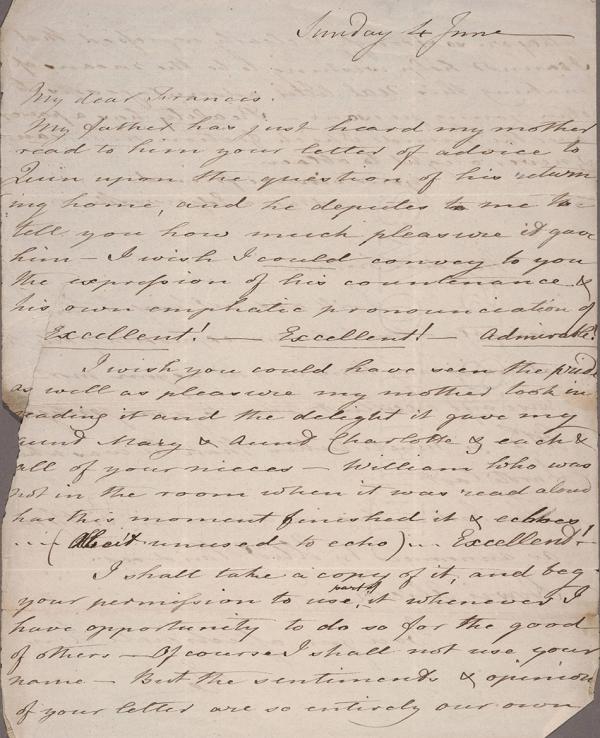 Sunday 4 June
My dear Francis.
My father has just heard my mother
read to him your letter of advice to
Quin upon the question of his return
my home, and he deputes to me to
tell you how much pleasure it gave
him – I wish I could convey to you
the expression of his countenance &
his own emphatic pronounciation of
Excellent! — Excellent! — Admirable!
I wish you could have seen the pride
as well as pleasure my mother took in
reading it and the delight it gave my
aunt Mary & Aunt Charlotte & each &
all of your nieces – William who was
not in the room when it was read aloud
has this moment finished it & echoes
... (Albeit unused to echo) ... Excellent!
I shall take a copy of it, and beg
your permission to use part of it whenever I
have opportunity to do so for the good
of others – Of course I shall not use your
name – But the sentiments & opinion
of your letter are so entirely our own